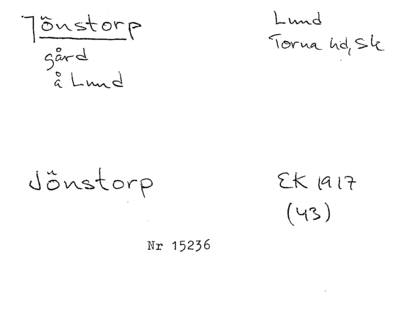 Jönstorp
gård
å Lund
Lund
Torna hd, Sk
Jönstorp
EK 1917
(43)
Nr 15236